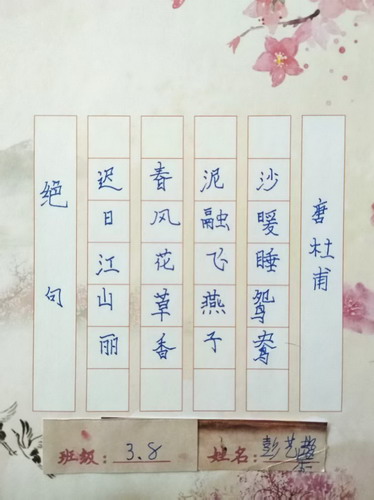 绝句
迟日江山丽
春风花草香
泥融飞燕子
沙暖睡鸳鸯
唐杜甫
班级：3.8
姓名：彭艺